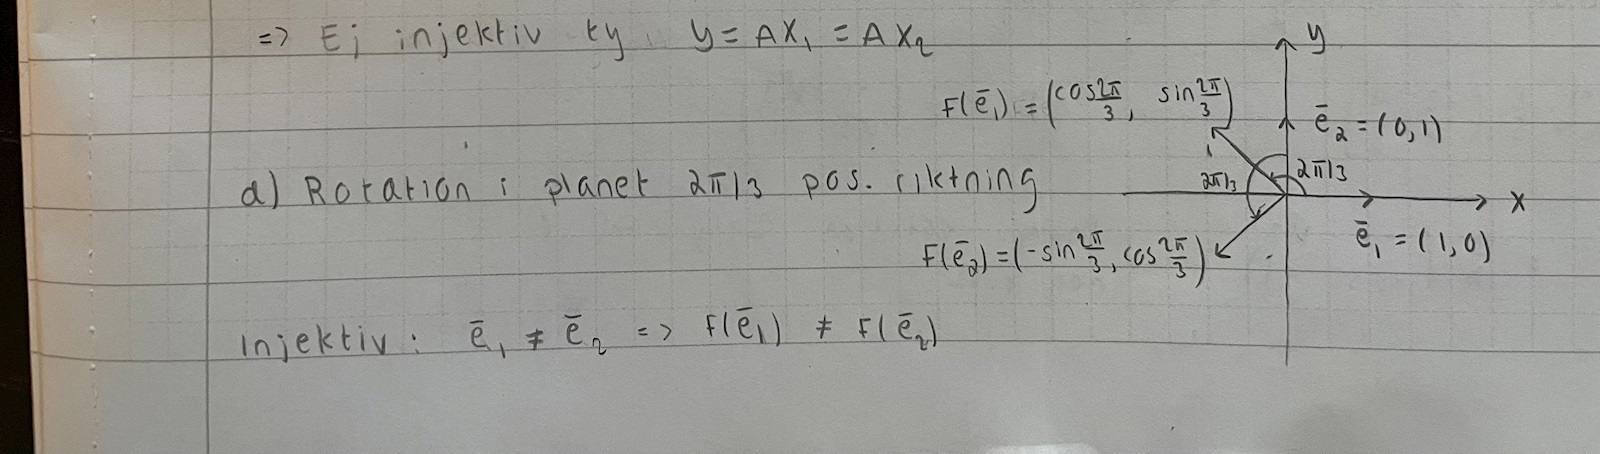 => Ej injektiv ty y = AX₁ = AX₂
y
F(ē₁) = (cos 2π/3, sin 2π/3)
ē₂ = (0,1)
d) Rotation i planet 2π/3 pos. riktning
2π/3
2π/3
x
ē₁ = (1,0)
F(ē₂) = (-sin 2π/3, cos 2π/3)
Injektiv: ē₁ ≠ ē₂ => F(ē₁) ≠ F(ē₂)